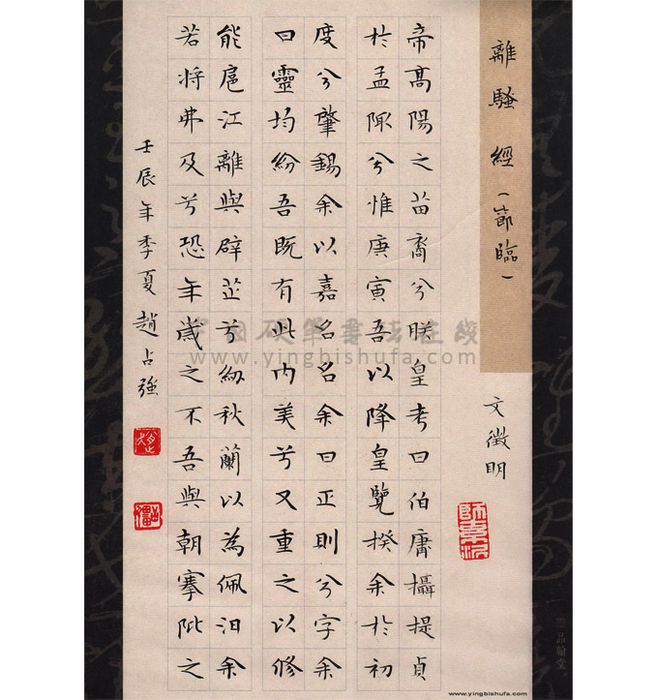 離騷經（節臨）
文徵明
帝高陽之苗裔兮朕皇考曰伯庸攝提貞
於孟陬兮惟庚寅吾以降皇覽揆余於初
度兮肇錫余以嘉名名余曰正則兮字余
曰靈均紛吾既有此內美兮又重之以修
能扈江離與辟芷兮紉秋蘭以為佩汨余
若將弗及兮恐年歲之不吾與朝搴阰之
壬辰年季夏趙占強
中国硬笔书法在线
www.yingbishufa.com
品翰堂
www.yingbishufa.com